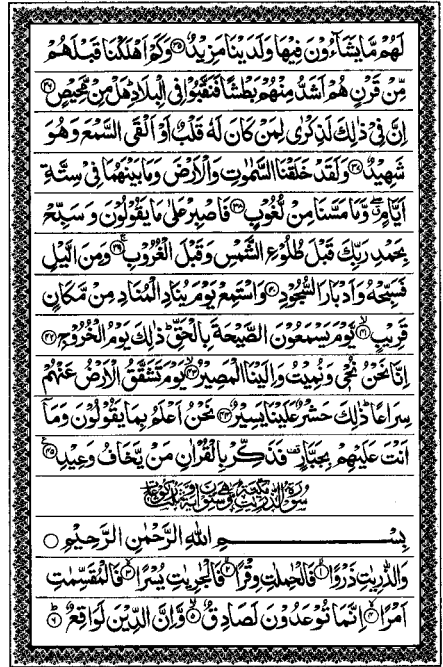 لَهُمْ مَّا يَشَآءُوْنَ فِيْهَا وَلَدَيْنَا مَزِيْدٌ ۝۳۵ وَكَمْ اَهْلَكْنَا قَبْلَهُمْ
مِّنْ قَرْنٍ هُمْ اَشَدُّ مِنْهُمْ بَطْشًا فَنَقَّبُوْا فِى الْبِلَادِ ؕ هَلْ مِنْ مَّحِيْصٍ ۝۳۶
اِنَّ فِىْ ذٰلِكَ لَذِكْرٰى لِمَنْ كَانَ لَهٗ قَلْبٌ اَوْ اَلْقَى السَّمْعَ وَهُوَ
شَهِيْدٌ ۝۳۷ وَلَقَدْ خَلَقْنَا السَّمٰوٰتِ وَالْاَرْضَ وَمَا بَيْنَهُمَا فِىْ سِتَّةِ
اَيَّامٍ ۖ وَّمَا مَسَّنَا مِنْ لُّغُوْبٍ ۝۳۸ فَاصْبِرْ عَلٰى مَا يَقُوْلُوْنَ وَ سَبِّحْ
بِحَمْدِ رَبِّكَ قَبْلَ طُلُوْعِ الشَّمْسِ وَقَبْلَ الْغُرُوْبِ ۝۳۹ وَمِنَ الَّيْلِ
فَسَبِّحْهُ وَاَدْبَارَ السُّجُوْدِ ۝۴۰ وَاسْتَمِعْ يَوْمَ يُنَادِ الْمُنَادِ مِنْ مَّكَانٍ
قَرِيْبٍ ۝۴۱ يَّوْمَ يَسْمَعُوْنَ الصَّيْحَةَ بِالْحَقِّ ؕ ذٰلِكَ يَوْمُ الْخُرُوْجِ ۝۴۲
اِنَّا نَحْنُ نُحْىٖ وَنُمِيْتُ وَاِلَيْنَا الْمَصِيْرُ ۝۴۳ يَوْمَ تَشَقَّقُ الْاَرْضُ عَنْهُمْ
سِرَاعًا ؕ ذٰلِكَ حَشْرٌ عَلَيْنَا يَسِيْرٌ ۝۴۴ نَحْنُ اَعْلَمُ بِمَا يَقُوْلُوْنَ وَمَاۤ
اَنْتَ عَلَيْهِمْ بِجَبَّارٍ ۟ فَذَكِّرْ بِالْقُرْاٰنِ مَنْ يَّخَافُ وَعِيْدِ ۝۴۵
سُوْرَةُ الذّٰرِيٰتِ مَكِّيَّةٌ وَّهِىَ سِتُّوْنَ اٰيَةً
بِسْمِ اللهِ الرَّحْمٰنِ الرَّحِيْمِ ۝
وَالذّٰرِيٰتِ ذَرْوًا ۝۱ فَالْحٰمِلٰتِ وِقْرًا ۝۲ فَالْجٰرِيٰتِ يُسْرًا ۝۳ فَالْمُقَسِّمٰتِ
اَمْرًا ۝۴ اِنَّمَا تُوْعَدُوْنَ لَصَادِقٌ ۝۵ وَّاِنَّ الدِّيْنَ لَوَاقِعٌ ۝۶